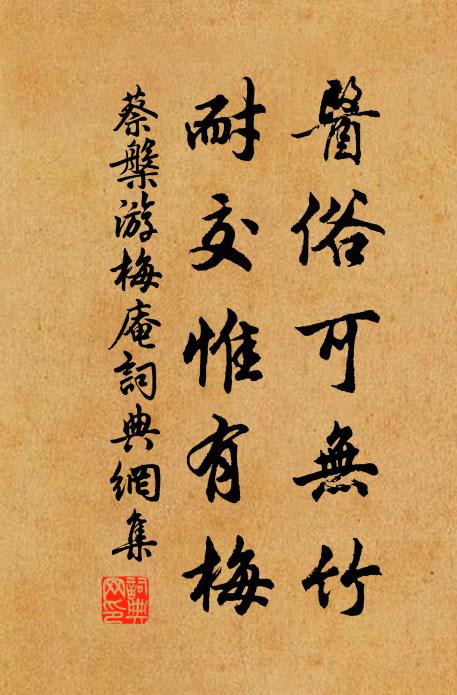 醫俗可無竹
耐交惟有梅
蔡槃游梅庵詞典網集
詞典網印